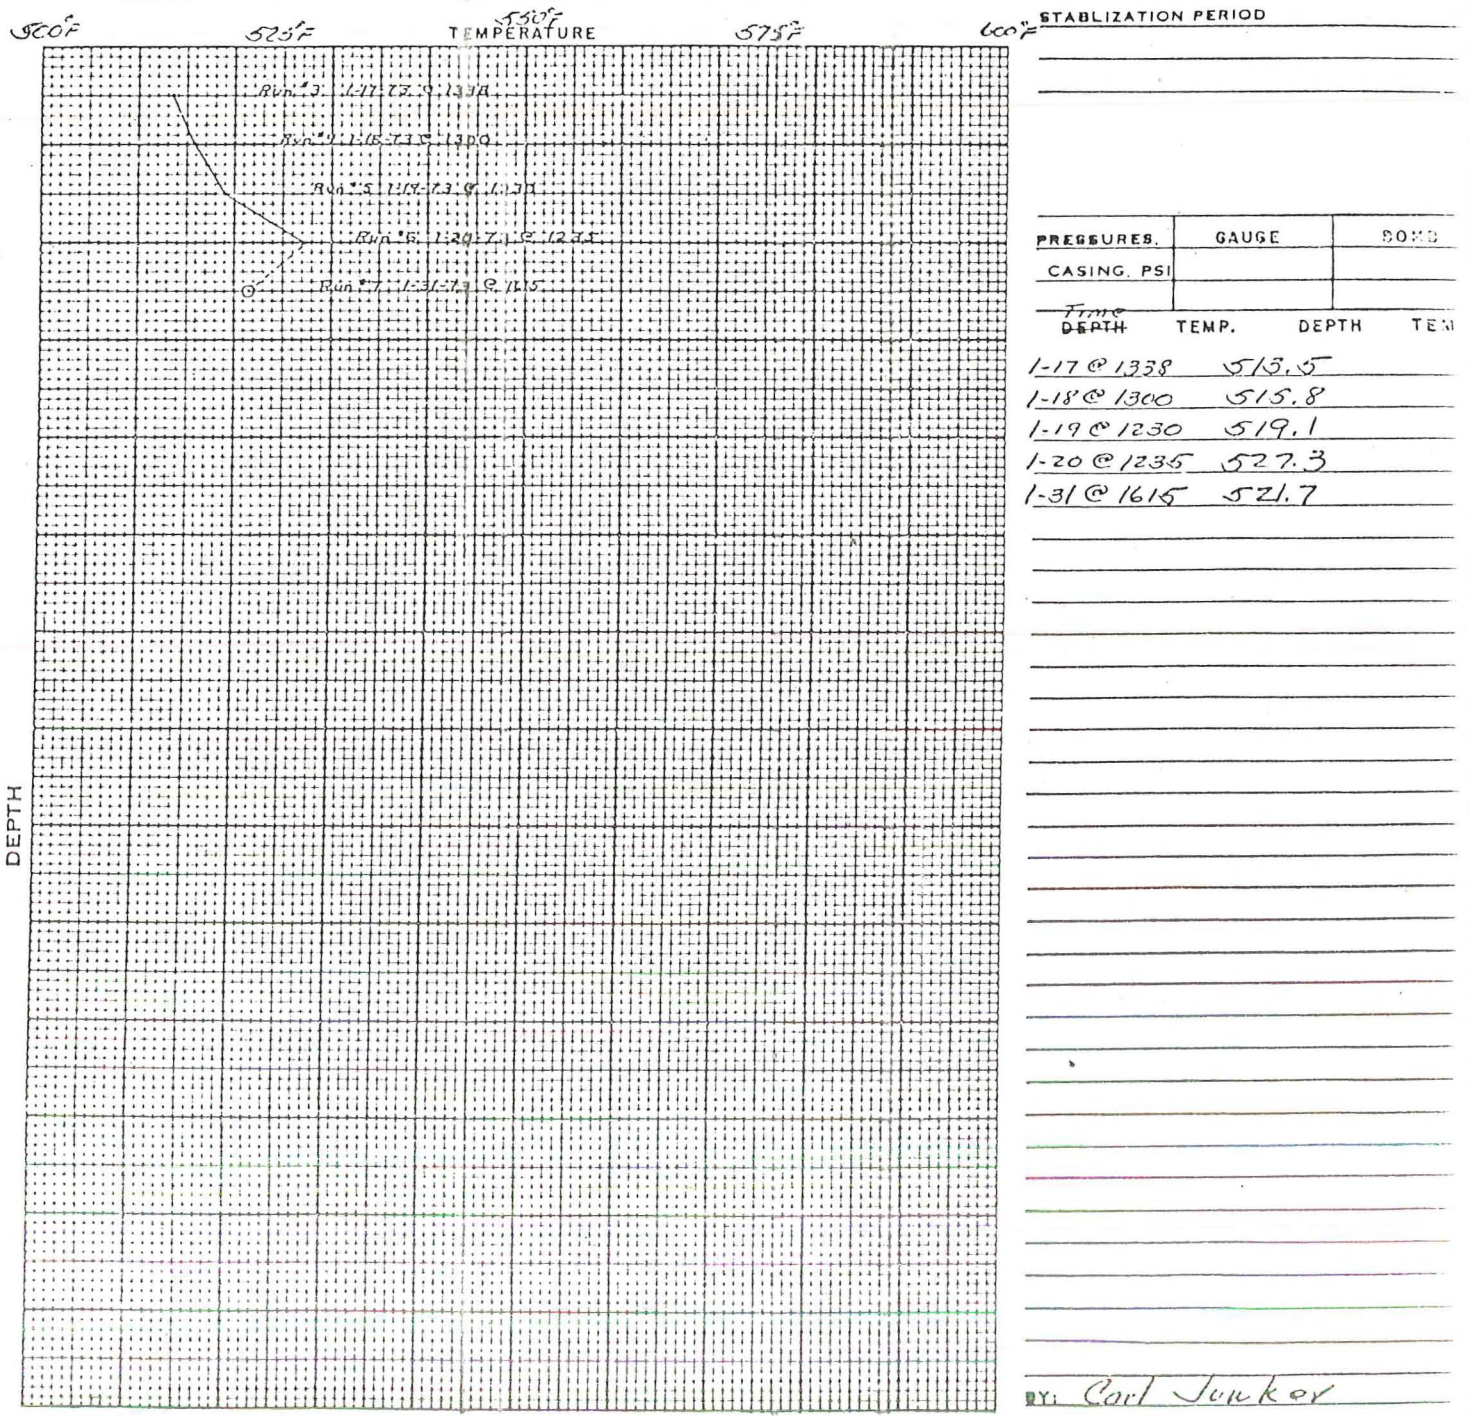 500°F 525°F 550°F 575°F 600°F
TEMPERATURE
Run #3 1-17-73 @ 1338
Run #4 1-18-73 @ 1300
Run #5 1-19-73 @ 1230
Run #6 1-20-73 @ 1235
Run #7 1-31-73 @ 1615
DEPTH
STABLIZATION PERIOD
PRESSURES, GAUGE BOMB
CASING, PSI
Time
DEPTH TEMP. DEPTH TEM
1-17 @ 1338 513.5
1-18 @ 1300 515.8
1-19 @ 1230 519.1
1-20 @ 1235 527.3
1-31 @ 1615 521.7
BY: Carl Junker